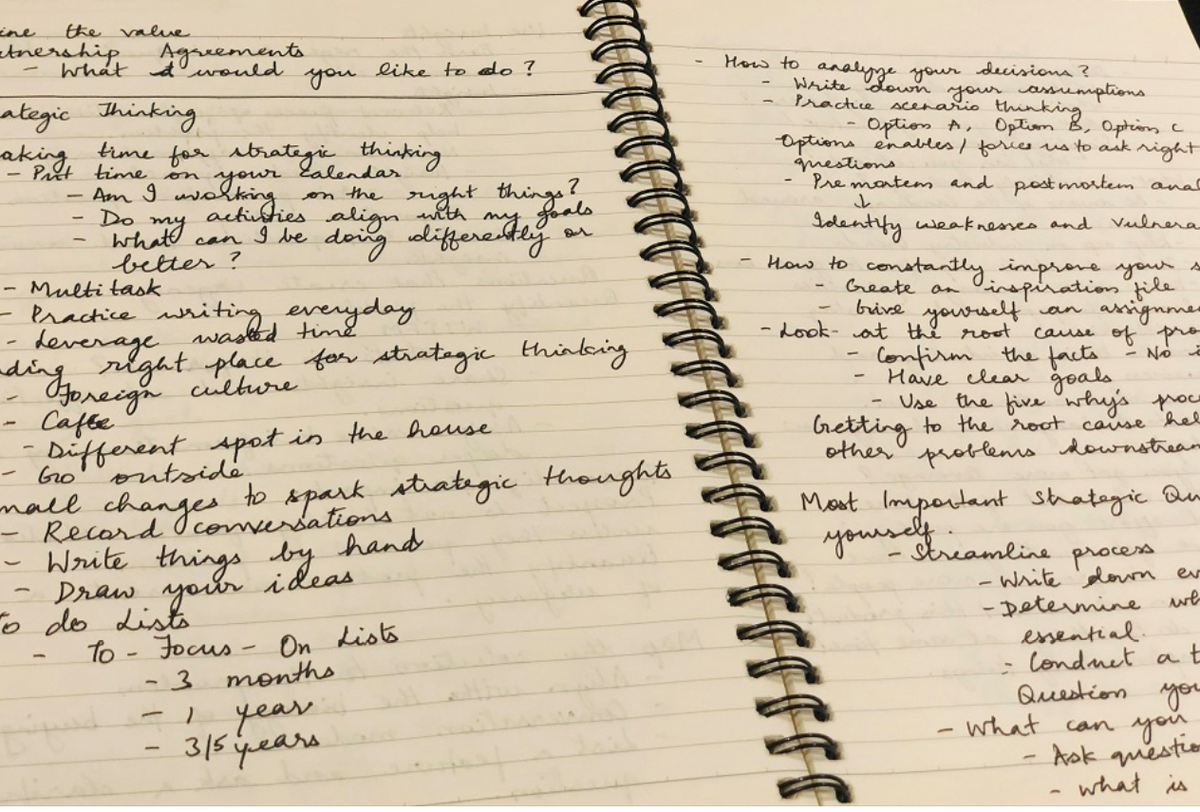 ine the value
tnership Agreements
- What would you like to do ?
ategic Thinking
aking time for strategic thinking
- Put time on your Calendar
- Am I working on the right things?
- Do my activities align with my goals
- What can I be doing differently or
better ?
- Multitask
- Practice writing everyday
- Leverage wasted time
ding right place for strategic thinking
- Foreign culture
- Caffe
- Different spot in the house
- Go outside
mall changes to spark strategic thoughts
- Record conversations
- Write things by hand
- Draw your ideas
To do Lists
- To - Focus - On Lists
- 3 months
- 1 year
- 3/5 years
- How to analyze your decisions ?
- Write down your assumptions
- Practice scenario thinking
- Option A, Option B, Option C
Options enables / forces us to ask right
questions
- Premortem and postmortem anal
↓
Identify weaknesses and vulnera
- How to constantly improve your s
- Create an inspiration file
- Give yourself an assignme
- Look at the root cause of pro
- Confirm the facts - No i
- Have clear goals
- Use the five why's proc
Getting to the root cause hel
other problems downstream
Most Important Strategic Qu
yourself.
- Streamline process
- Write down ev
- Determine wh
essential.
- Conduct a t
Question you
- What can you
- Ask questio
- what is